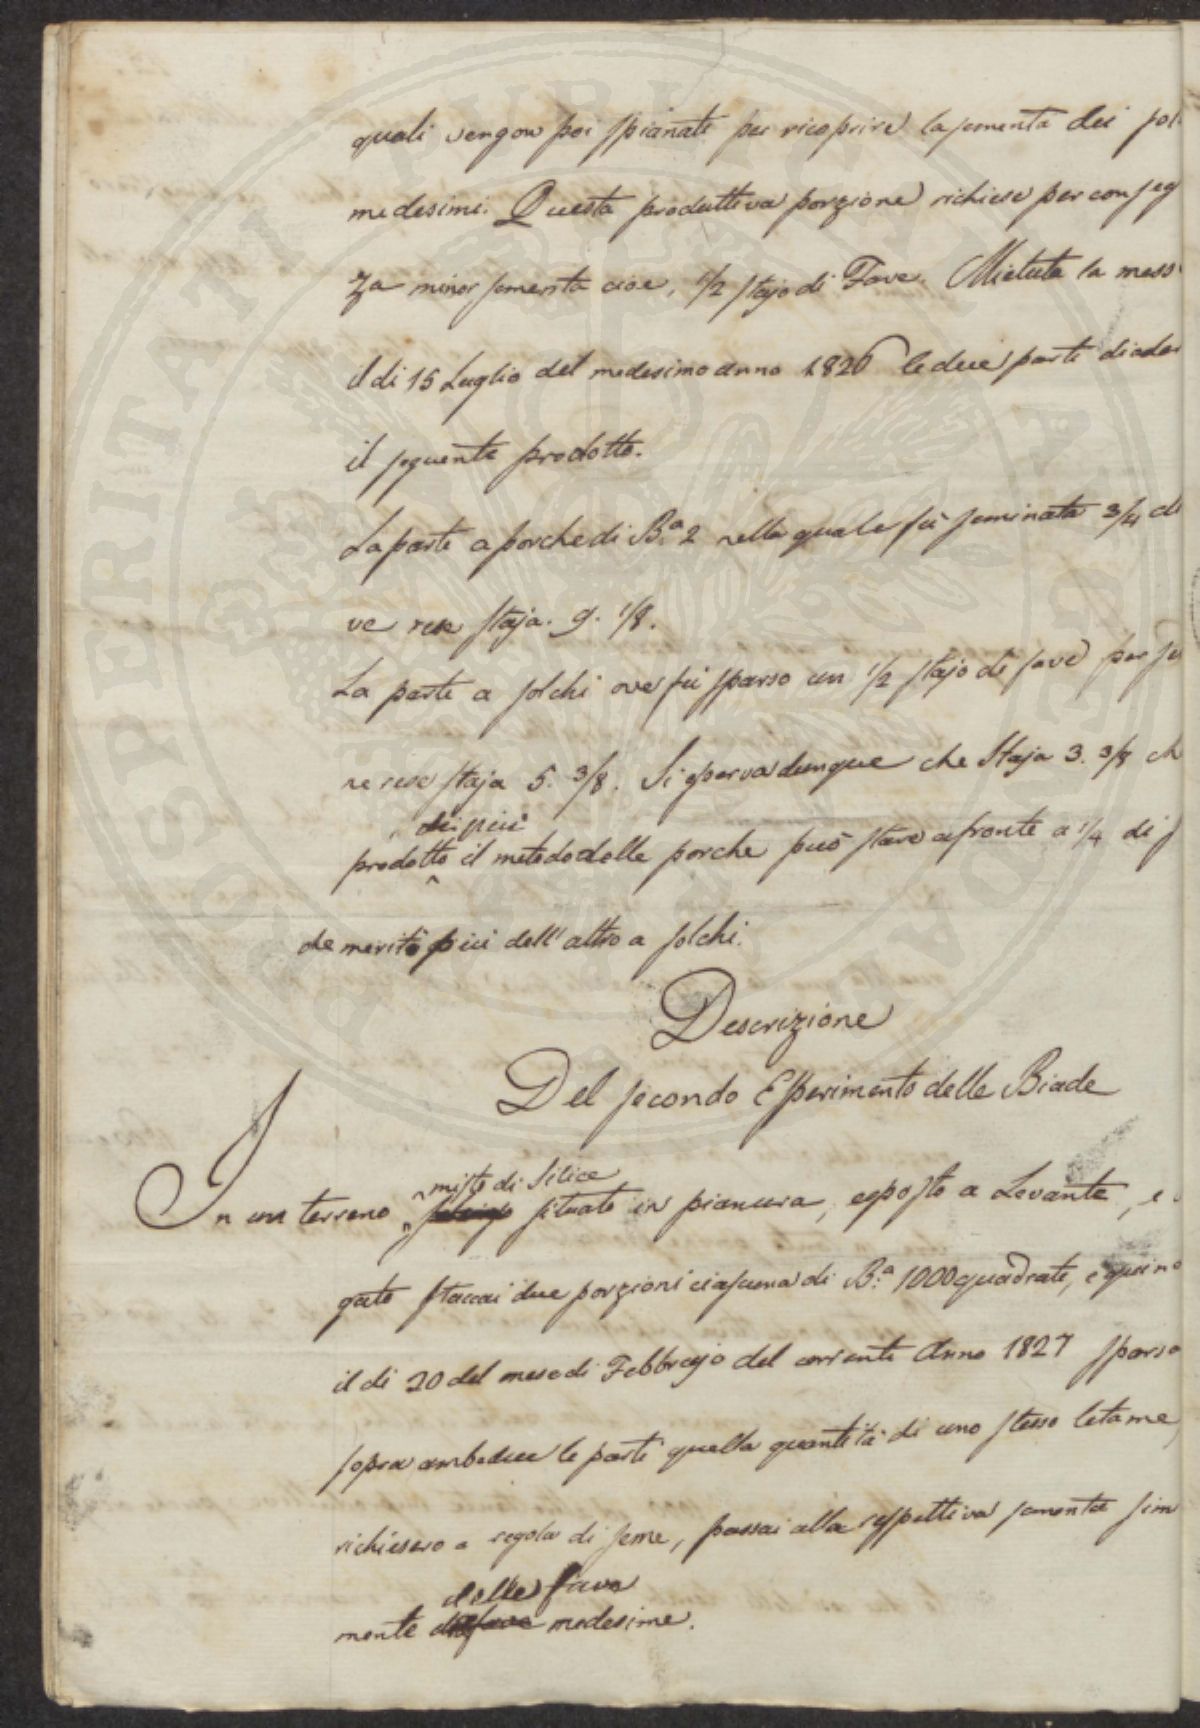 quali vengon poi spianati per ricoprire la sementa dei sol
medesimi. Questa produttiva porzione richiese per conseg
za minor sementa cioe, 1/2 stajo di Fave. Mietuta la mess
il di 15 Luglio del medesimo anno 1826 le due parti dieder
il seguente prodotto.
La parte a porche di B.a 2 nella quale fù seminata 3/4 di
ve rese staja. 9. 1/8.
La parte a solchi ove fù sparso un 1/2 stajo di fave per se
ne rese staja 5. 3/8. Si osserva dunque che Staja 3. 3/8 ch
di più
prodotto il metodo delle porche può stare afronte a 1/4 di s
de merito più dell' altro a solchi.
Descrizione
Del secondo Esperimento delle Biade
misto di Silice
In un terreno situato in pianura, esposto a Levante, e
gato staccai due porzioni ciascuna di B.a 1000 quadrate, e quin
il di 20 del mese di Febbrajo del corrente Anno 1827 sparso
sopra ambedue le parti quella quantità di uno stesso letame
richiesero a regola di seme, passai alla respettiva sementa sim
delle fave
mente medesime.
PROSPERITATI PUBLICAE AUGENDAE